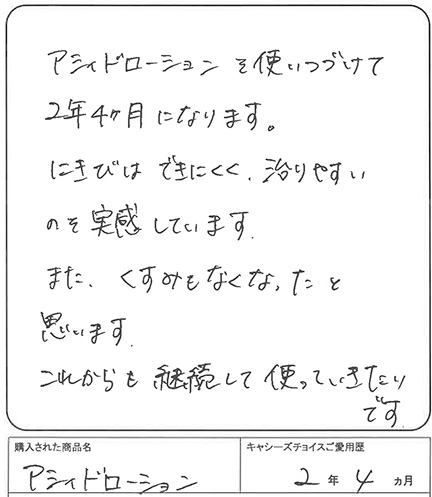 アシィドローションを使いつづけて
2年4ヶ月になります。
にきびは できにくく、治りやすい
のを実感しています.
また、くすみもなくなったと
思います.
これからも 継続して 使っていきたい
です.
購入された商品名
キャシーズチョイスご愛用歴
アシィドローション
2 年 4 ヵ月